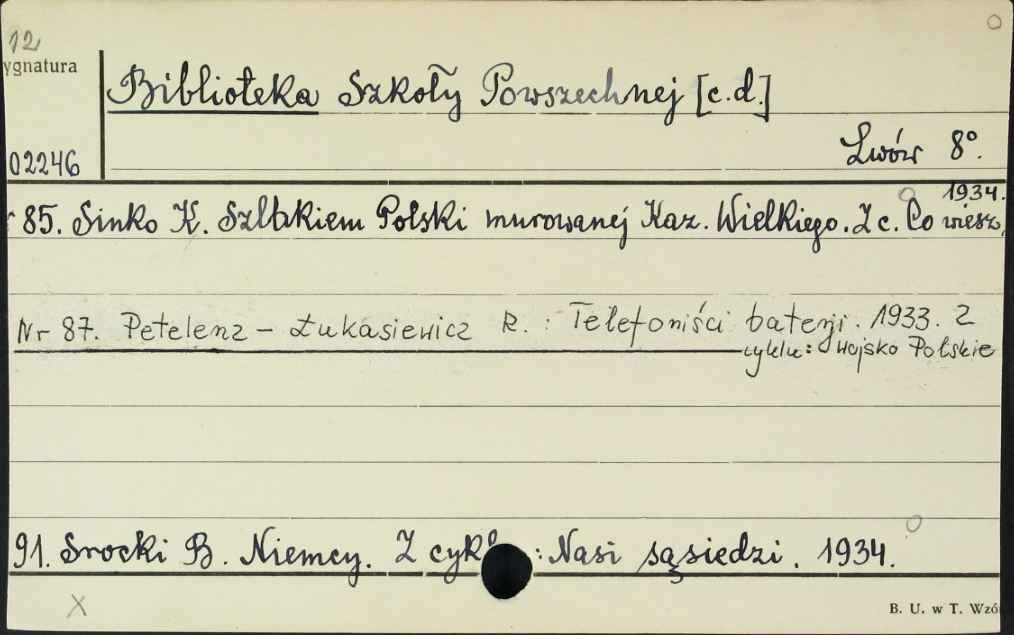 12
ygnatura
Biblioteka Szkoły Powszechnej [c.d.]
02246
Lwów 8°.
1934.
85. Sinko K. Szlakiem Polski murowanej Kaz. Wielkiego. Z c. Co wiesz,
Nr 87. Petelenz – Łukasiewicz R.: Telefoniści baterji. 1933. Z
cyklu: Wojsko Polskie
91. Srocki B. Niemcy. Z cykl : Nasi sąsiedzi. 1934.
X
B. U. w T. Wzó